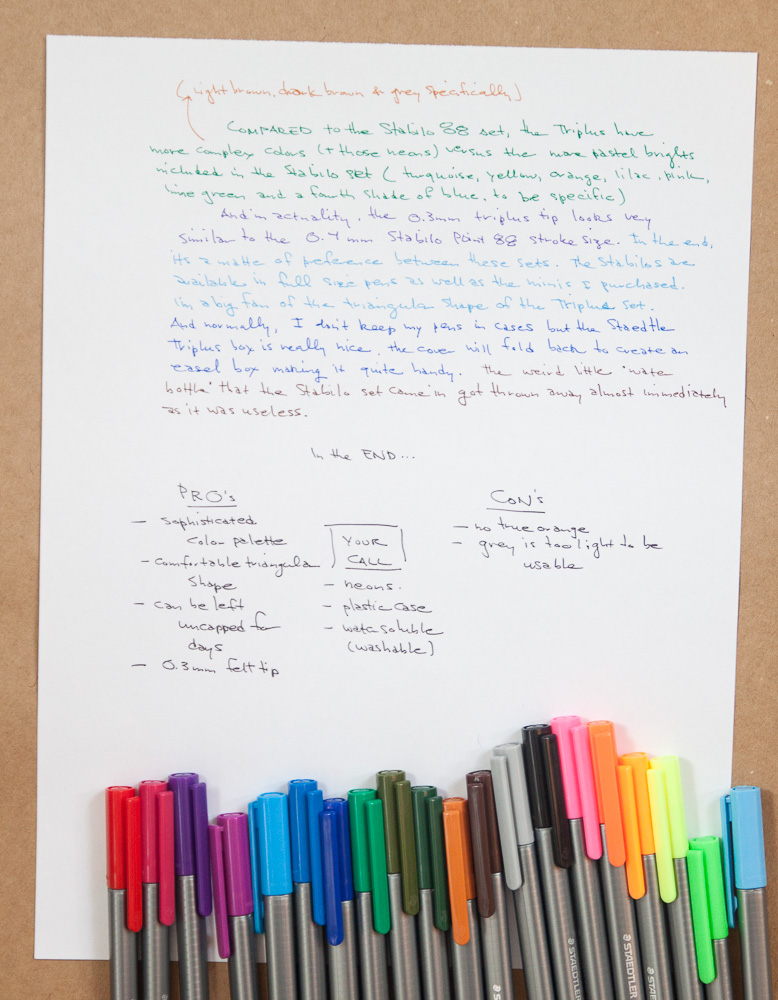 (light brown, drark brown & grey specifically)
COMPARED to the Stabilo 88 set, the Triplus have
more complex colors (+ those neons) versus the more pastel brights
included in the Stabilo set ( turquoise, yellow, orange, lilac, pink,
lime green and a fourth shade of blue, to be specific)
And in actuality, the 0.3mm triplus tip looks very
similar to the 0.4mm Stabilo Point 88 stroke size. In the end,
its a matter of preference between these sets. The Stabilos are
available in full size pens as well as the minis I purchased.
I'm a big fan of the triangular shape of the Triplus set.
And normally, I don't keep my pens in cases but the Staedtler
Triplus box is really nice. the cover will fold back to create an
easel box making it quite handy. the weird little "water
bottle" that the Stabilo set came in got thrown away almost immediately
as it was useless.
In the END...
PRO's
- Sophisticated
Color palette
- comfortable triangular
shape
- can be left
uncapped for
days
- 0.3mm felt tip
YOUR
CALL
- neons.
- plastic case
- water soluble
(washable)
CON's
- no true orange
- grey is too light to be
usable
STAEDTLER
STAEDTLER
STAEDTLER